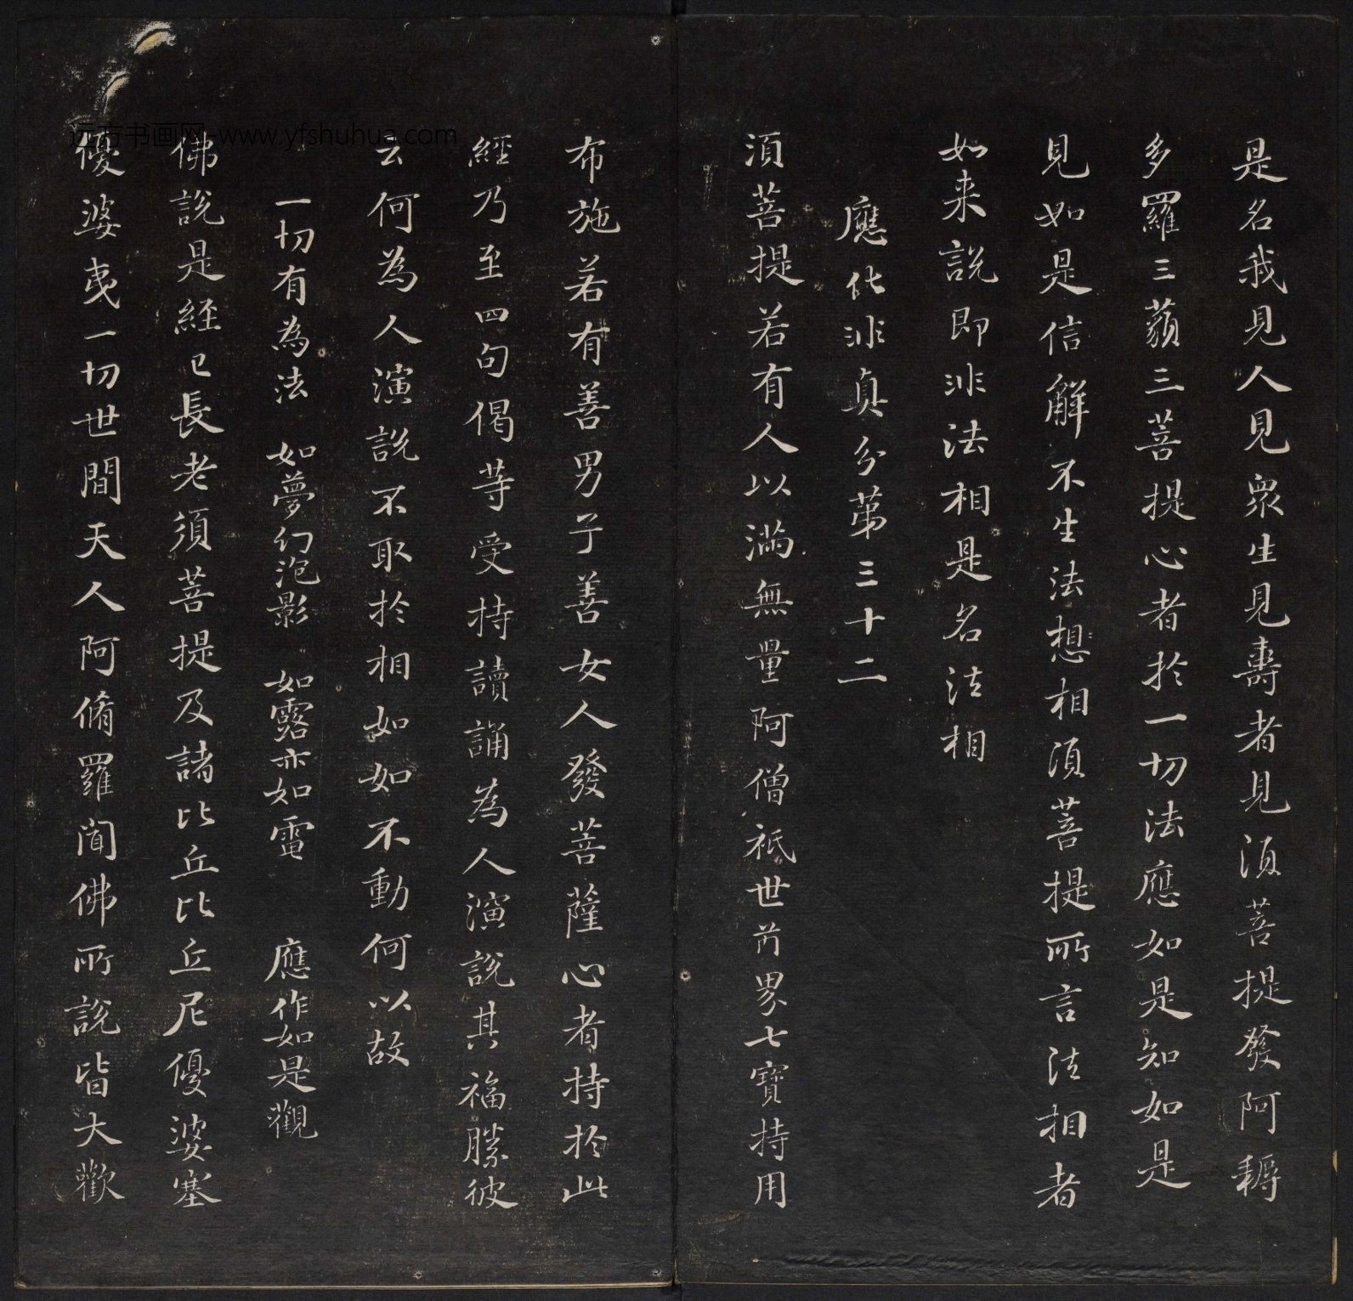 是名我見人見衆生見壽者見須菩提發阿耨
多羅三藐三菩提心者於一切法應如是知如是
見如是信解不生法想相須菩提所言法相者
如来說即非法相是名法相
應化非真分第三十二
須菩提若有人以滿無量阿僧祇世界七寶持用
布施若有善男子善女人發菩薩心者持於此
經乃至四句偈等受持讀誦為人演說其福勝彼
云何為人演說不取於相如如不動何以故
一切有為法 如夢幻泡影 如露亦如電 應作如是觀
佛說是經已長老須菩提及諸比丘比丘尼優婆塞
優婆夷一切世間天人阿脩羅聞佛所說皆大歡
远方书画网-www.yfshuhua.com